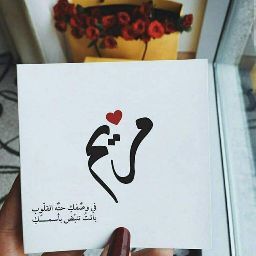 مريم
في وصفك حتى القلوب
باتت تنبض بأسمك